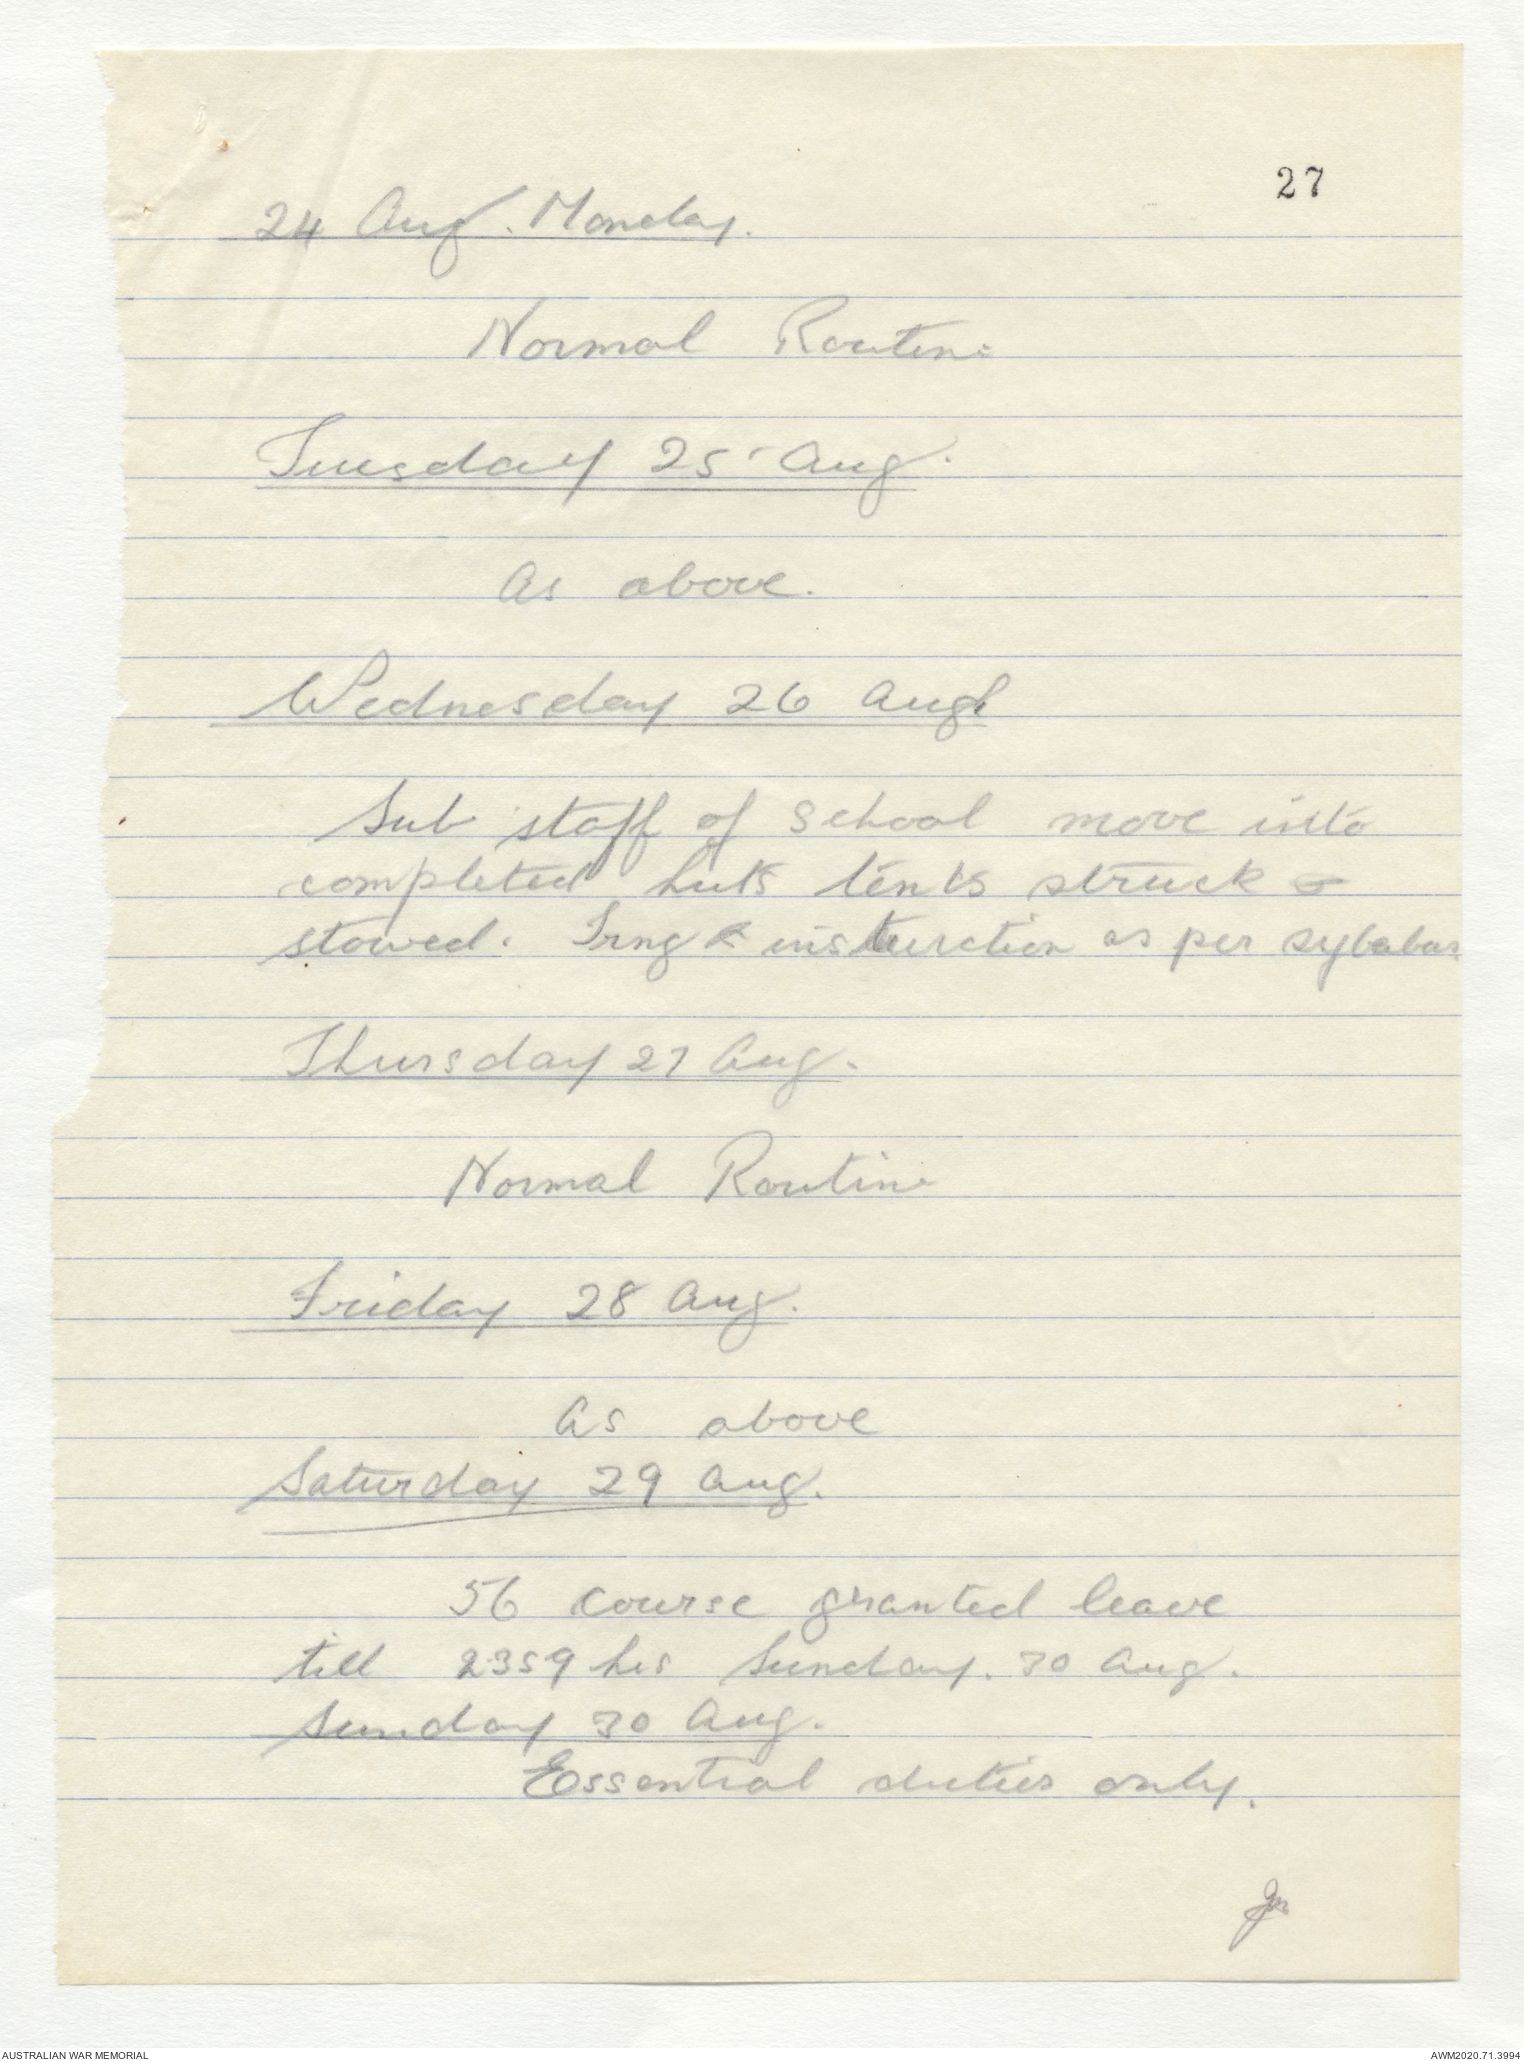 27
24 Aug. Monday.
Normal Routine
Tuesday 25 Aug.
As above.
Wednesday 26 Aug
Sub staff of School move into
completed huts tents struck &
stowed. Trng & insturction as per sylabus.
Thursday 27 Aug.
Normal Routine
Friday 28 Aug.
As above
Saturday 29 Aug.
56 course granted leave
till 2359 hrs Sunday. 30 Aug.
Sunday 30 Aug.
Essential duties only.
AUSTRALIAN WAR MEMORIAL
AWM2020.71.3994